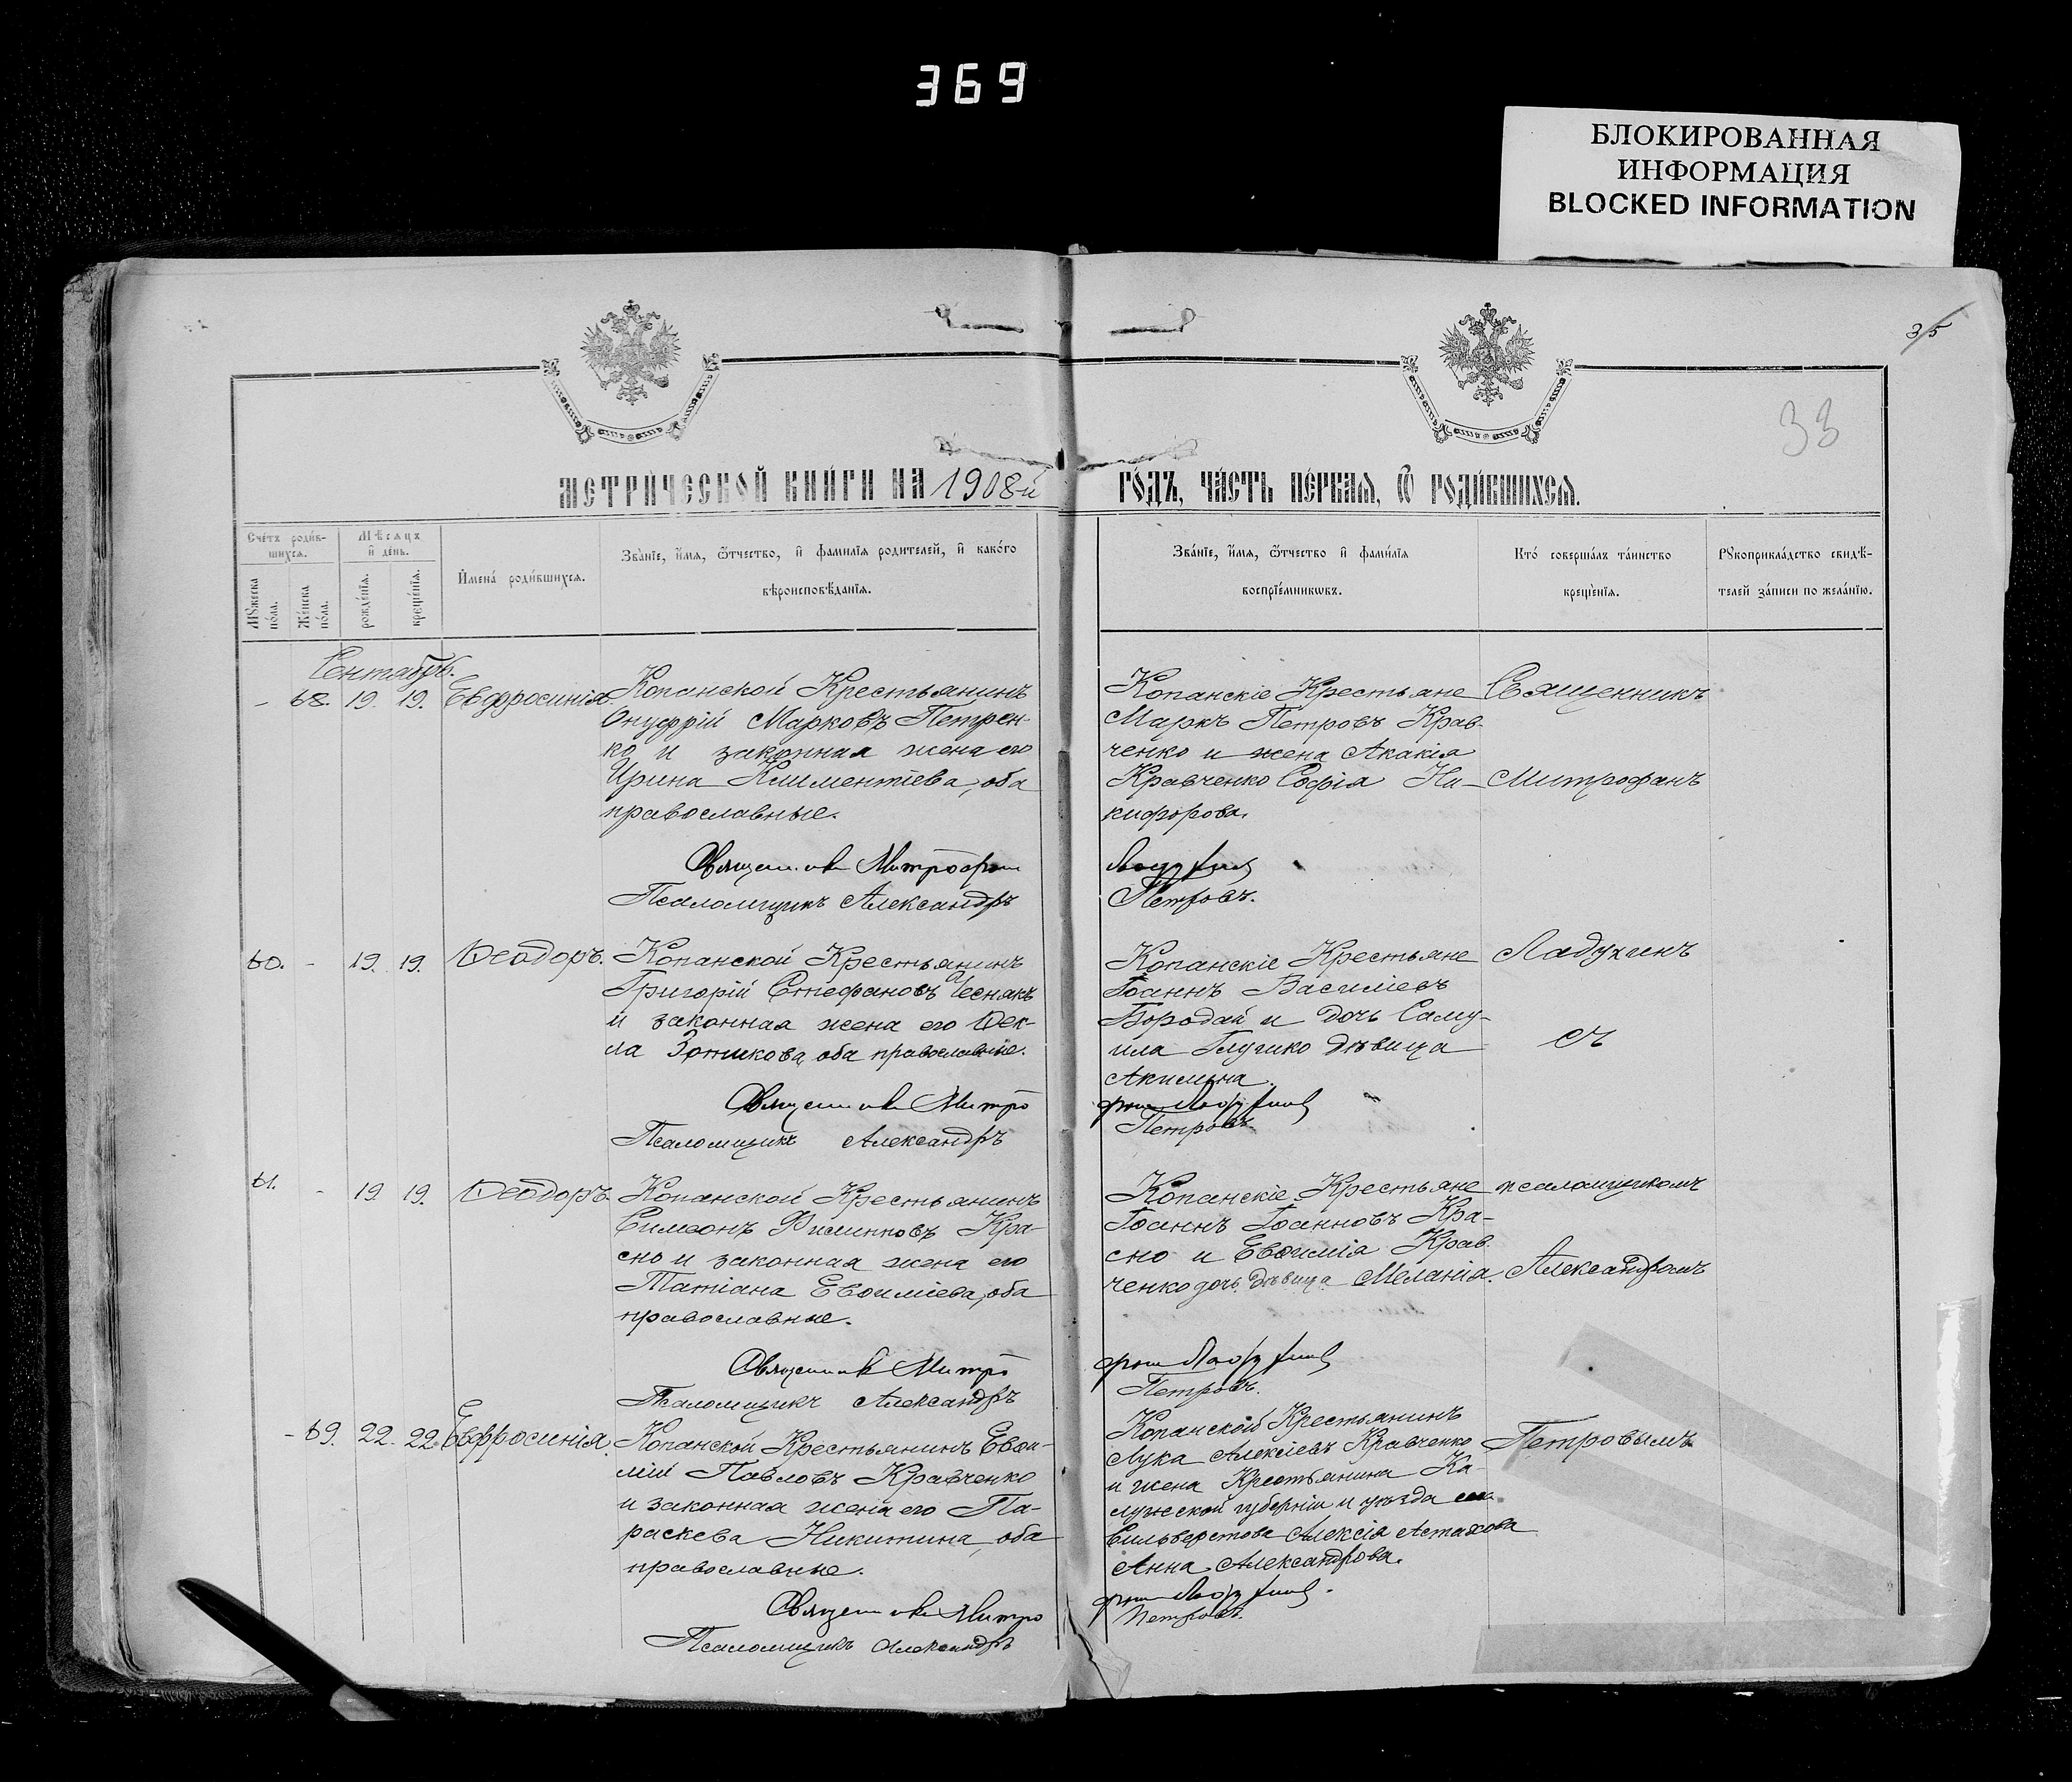 369
БЛОКИРОВАННАЯ
ИНФОРМАЦИЯ
BLOCKED INFORMATION
35
33
МЕТРИ́ЧЕСКОЙ КНИ́ГИ НА 1908-й ГО́ДЪ, ЧА́СТЬ ПЕ́РВАЯ, Ѿ РОДИ́ВШИХСЯ.
Сче́тъ роди́в-
шихся.
Мꙋжеска по́ла.
Же́нска по́ла.
Мѣ́сяцъ
и҆ де́нь.
рожде́нїя.
креще́нїя.
И҆мена́ роди́вшихся.
Зва́нїе, и҆́мя, ѻ҆́тчество, и҆ фами́лїя родителей, и҆ како́го
вѣроисповѣ́данїя.
Зва́нїе, и҆́мя, ѻ҆́тчество и҆ фами́лїя
воспрїе́мникѡвъ.
Кто̀ соверша́лъ та́инство
креще́нїя.
Рꙋкоприкла́дство свидѣ́-
телей за́писи по жела́нїю.
Сентябрь.
- 68. 19. 19. Евфросинія.
Копанской Крестьянинъ
Онуфрій Марковъ Петрен-
ко и законная жена его
Ирина Климентіева, оба
православные.
Священникъ Митрофан
Псаломщикъ Александръ
Копанскіе Крестьяне
Маркъ Петровъ Крав-
ченко и жена Акакія
Кравченко Софія Ни-
кифорова.
Ладухинъ
Петровъ.
Священникъ
Митрофанъ
60. - 19. 19. Ѳеодоръ.
Копанской Крестьянинъ
Григорій Стефановъ Чеснякъ
и законная жена его Ѳек-
ла Зотикова, оба православные.
Священникъ Митро
Псаломщикъ Александръ
Копанскіе Крестьяне
Іоаннъ Василіевъ
Бородай и дочь Саму-
ила Глушко дѣвица
Акилина.
фан Ладухинъ
Петровъ
Ладухинъ
съ
61. - 19. 19. Ѳеодоръ.
Копанской Крестьянинъ
Симеонъ Филипповъ Кра-
сно и законная жена его
Татіана Евѳиміева, оба
православные.
Священникъ Митро
Псаломщикъ Александръ
Копанскіе Крестьяне
Іоаннъ Іоанновъ Кра-
сно и Евѳимія Крав-
ченко дочь дѣвица Меланія.
фан Ладухинъ
Петровъ.
псаломщикомъ
Александромъ
- 69. 22. 22. Евфросинія.
Копанской Крестьянинъ Евѳи-
мій Павловъ Кравченко
и законная жена его Па-
раскева Никитина, оба
православные.
Священникъ Митро
Псаломщикъ Александръ
Копанской Крестьянинъ
Лука Алексіевъ Кравченко
и жена Крестьянина Ка-
лужской губерніи и уѣзда
Сильверстова Алексія Астахова
Анна Александрова.
фан Ладухинъ.
Петровъ.
Петровымъ